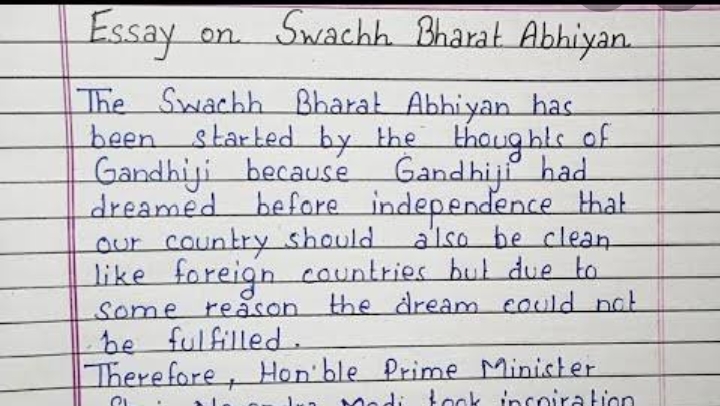 Essay on Swachh Bharat Abhiyan
The Swachh Bharat Abhiyan has
been started by the thoughts of
Gandhiji because Gandhiji had
dreamed before independence that
our country should also be clean
like foreign countries but due to
some reason the dream could not
be fulfilled.
Therefore, Hon'ble Prime Minister
Modi took inspiration